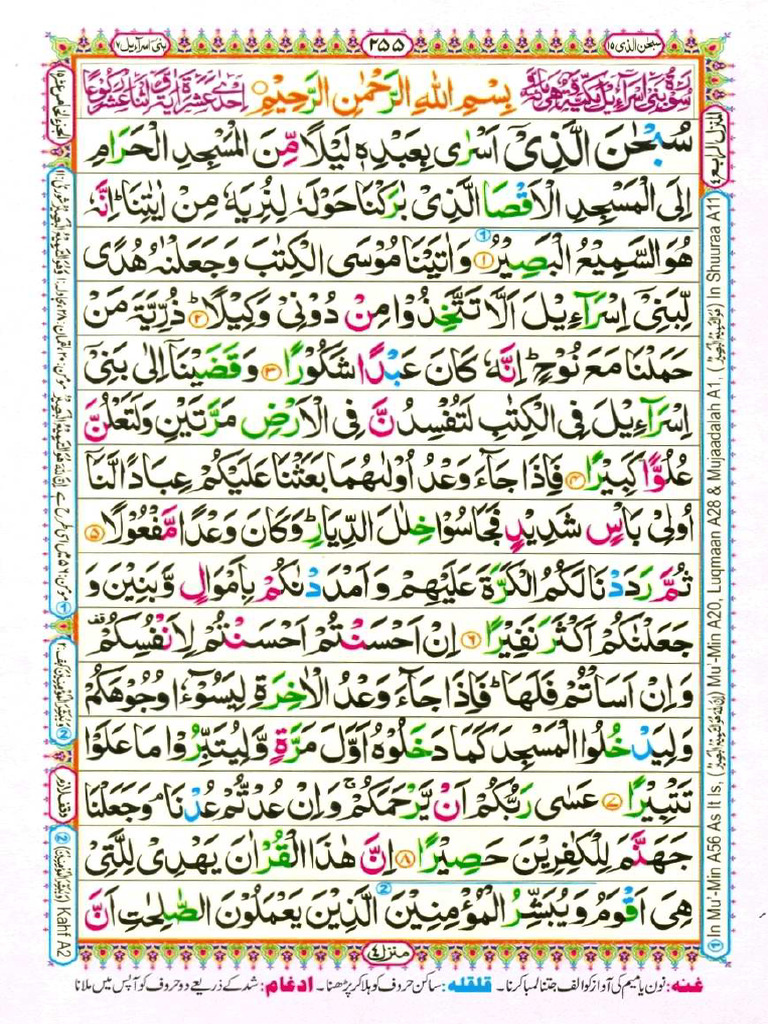 سبحٰن الذی ۱۵
۲۵۵
بنیٓ اسرآءیل ۷
بِسْمِ اللهِ الرَّحْمٰنِ الرَّحِيْمِ
سُبْحٰنَ الَّذِيْٓ اَسْرٰى بِعَبْدِهٖ لَيْلًا مِّنَ الْمَسْجِدِ الْحَرَامِ
اِلَى الْمَسْجِدِ الْاَقْصَا الَّذِيْ بٰرَكْنَا حَوْلَهٗ لِنُرِيَهٗ مِنْ اٰيٰتِنَا ؕ اِنَّهٗ
هُوَ السَّمِيْعُ الْبَصِيْرُ ۝۱ وَاٰتَيْنَا مُوْسَى الْكِتٰبَ وَجَعَلْنٰهُ هُدًى
لِّبَنِيْٓ اِسْرَآءِيْلَ اَلَّا تَتَّخِذُوْا مِنْ دُوْنِيْ وَكِيْلًا ؕ۝۲ ذُرِّيَّةَ مَنْ
حَمَلْنَا مَعَ نُوْحٍ ؕ اِنَّهٗ كَانَ عَبْدًا شَكُوْرًا ۝۳ وَقَضَيْنَآ اِلٰى بَنِيْٓ
اِسْرَآءِيْلَ فِي الْكِتٰبِ لَتُفْسِدُنَّ فِي الْاَرْضِ مَرَّتَيْنِ وَلَتَعْلُنَّ
عُلُوًّا كَبِيْرًا ۝۴ فَاِذَا جَآءَ وَعْدُ اُوْلٰىهُمَا بَعَثْنَا عَلَيْكُمْ عِبَادًا لَّنَآ
اُولِيْ بَاْسٍ شَدِيْدٍ فَجَاسُوْا خِلٰلَ الدِّيَارِ ؕ وَكَانَ وَعْدًا مَّفْعُوْلًا ۝۵
ثُمَّ رَدَدْنَا لَكُمُ الْكَرَّةَ عَلَيْهِمْ وَاَمْدَدْنٰكُمْ بِاَمْوَالٍ وَّبَنِيْنَ وَ
جَعَلْنٰكُمْ اَكْثَرَ نَفِيْرًا ۝۶ اِنْ اَحْسَنْتُمْ اَحْسَنْتُمْ لِاَنْفُسِكُمْ ۫
وَاِنْ اَسَاْتُمْ فَلَهَا ؕ فَاِذَا جَآءَ وَعْدُ الْاٰخِرَةِ لِيَسُوْٓءٗا وُجُوْهَكُمْ
وَلِيَدْخُلُوا الْمَسْجِدَ كَمَا دَخَلُوْهُ اَوَّلَ مَرَّةٍ وَّلِيُتَبِّرُوْا مَا عَلَوْا
تَتْبِيْرًا ۝۷ عَسٰى رَبُّكُمْ اَنْ يَّرْحَمَكُمْ ۚ وَاِنْ عُدْتُّمْ عُدْنَا ۘ وَجَعَلْنَا
جَهَنَّمَ لِلْكٰفِرِيْنَ حَصِيْرًا ۝۸ اِنَّ هٰذَا الْقُرْاٰنَ يَهْدِيْ لِلَّتِيْ
هِيَ اَقْوَمُ وَيُبَشِّرُ الْمُؤْمِنِيْنَ الَّذِيْنَ يَعْمَلُوْنَ الصّٰلِحٰتِ اَنَّ
منزل ۴
① In Mu'-Min A56 As It Is, Mu'-Min A20, Luqmaan A28 & Mujaadalah A1, In Shuuraa A11
② Kahf A2
غنه: نون یا میم کی آواز کو الف جتنا لمبا کرنا۔ قلقله: ساکن حروف کو ہلا کر پڑھنا۔ ادغام: شد کے ذریعے دو حروف کو آپس میں ملانا